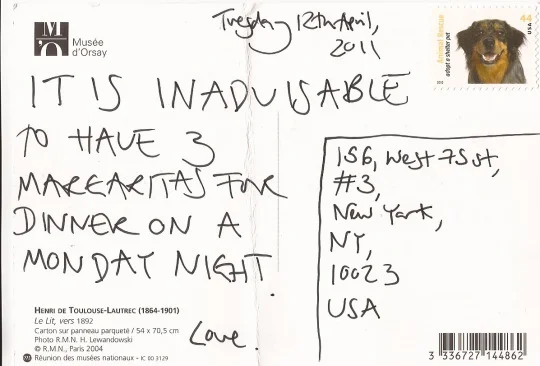 M'O
Musée
d'Orsay
Tuesday 12th April,
2011
Animal Rescue
adopt a shelter pet
44
USA
2010
IT IS INADVISABLE
TO HAVE 3
MARGARITAS FOR
DINNER ON A
MONDAY NIGHT.
Love.
156, West 75 st,
#3,
New York,
NY,
10023
USA
HENRI DE TOULOUSE-LAUTREC (1864-1901)
Le Lit, vers 1892
Carton sur panneau parqueté / 54 x 70,5 cm
Photo R.M.N. H. Lewandowski
© R.M.N., Paris 2004
Réunion des musées nationaux - IC 00 3129
3 336727 144862